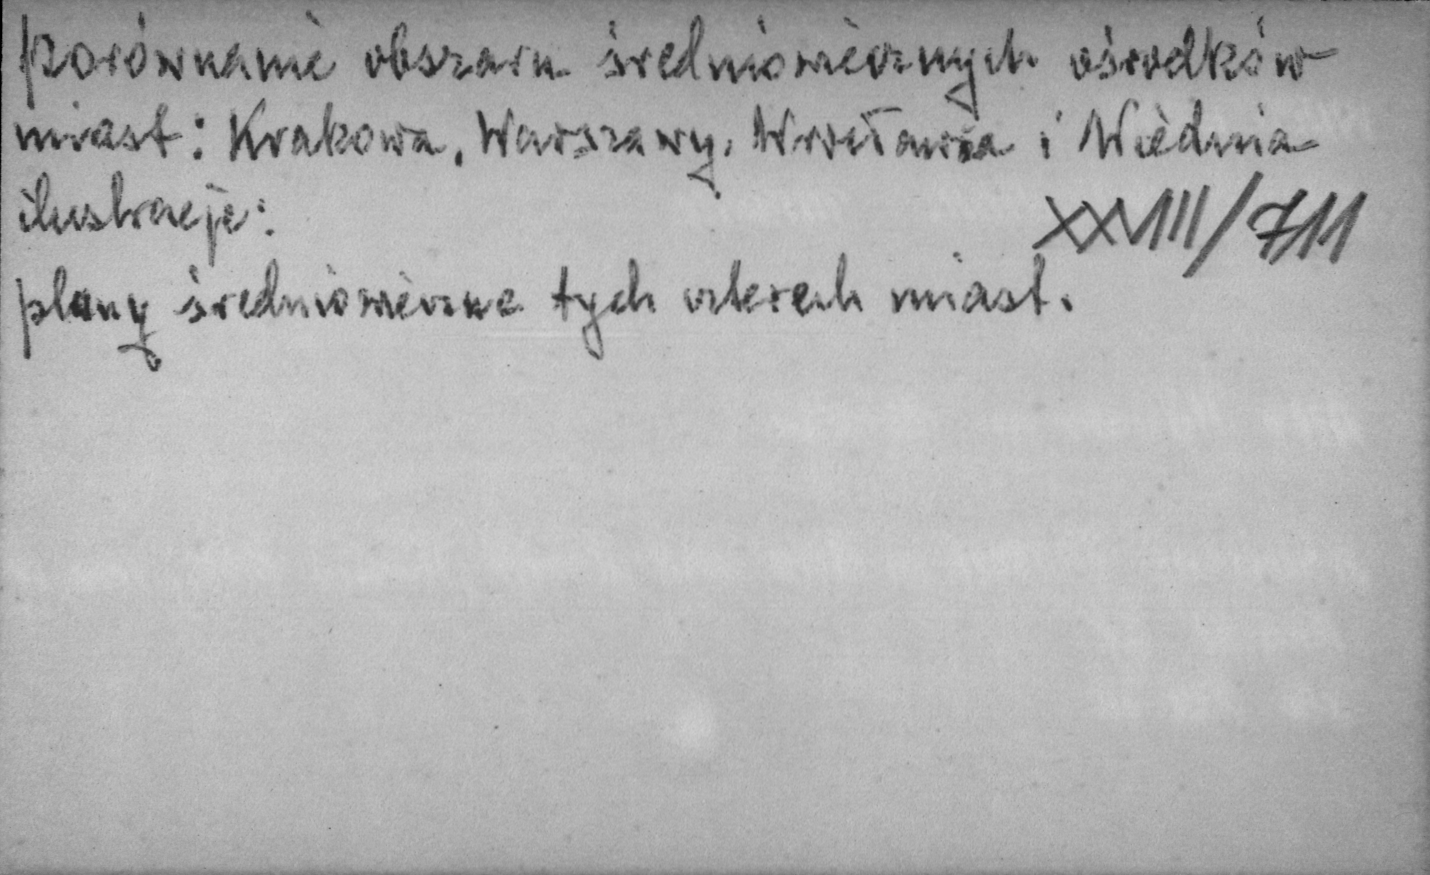 porównanie obszaru średniowiecznych ośrodków
miast: Krakowa, Warszawy, Wrocławia i Wiednia
ilustracje:
XXVIII/711
plany średniowieczne tych czterech miast.